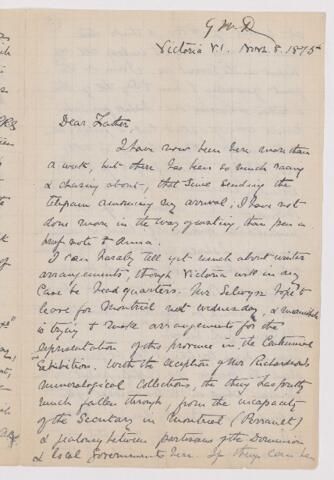 G M D
Victoria V.I. Novr. 8. 1875
Dear Father,
I have now been here more than
a week, but there has been so much
& chasing about, that since sending the
telegram announcing my arrival, I have not
done more in the way of writing than pen a
brief note to Anna.
I can hardly tell yet much about winter
arrangements, though Victoria will in any
case be headquarters. Mr. Selwyn hopes to
leave for Montreal next Wednesday, & meanwhile
is trying to make arrangements for the
representation of this province in the Centennial
Exhibition. With the exception of Mr Richardson's
mineralogical collections, the thing has pretty
much fallen through, from the incapacity
of the Secretary in Montreal (Perrault)
& jealousy between partisans of the Dominion
& local Governments here. If things can be